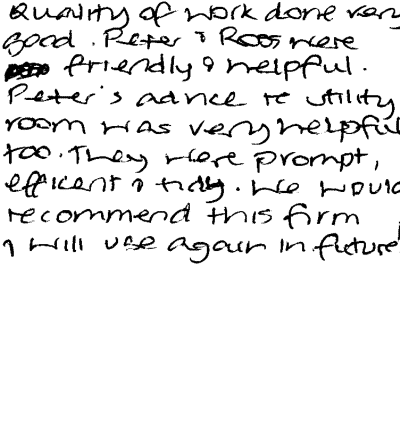 Quality of work done very
good. Peter & Ross were
friendly & helpful.
Peter's advice re utility
room was very helpful
too. They were prompt,
efficient & tidy. We would
recommend this firm
& will use again in future